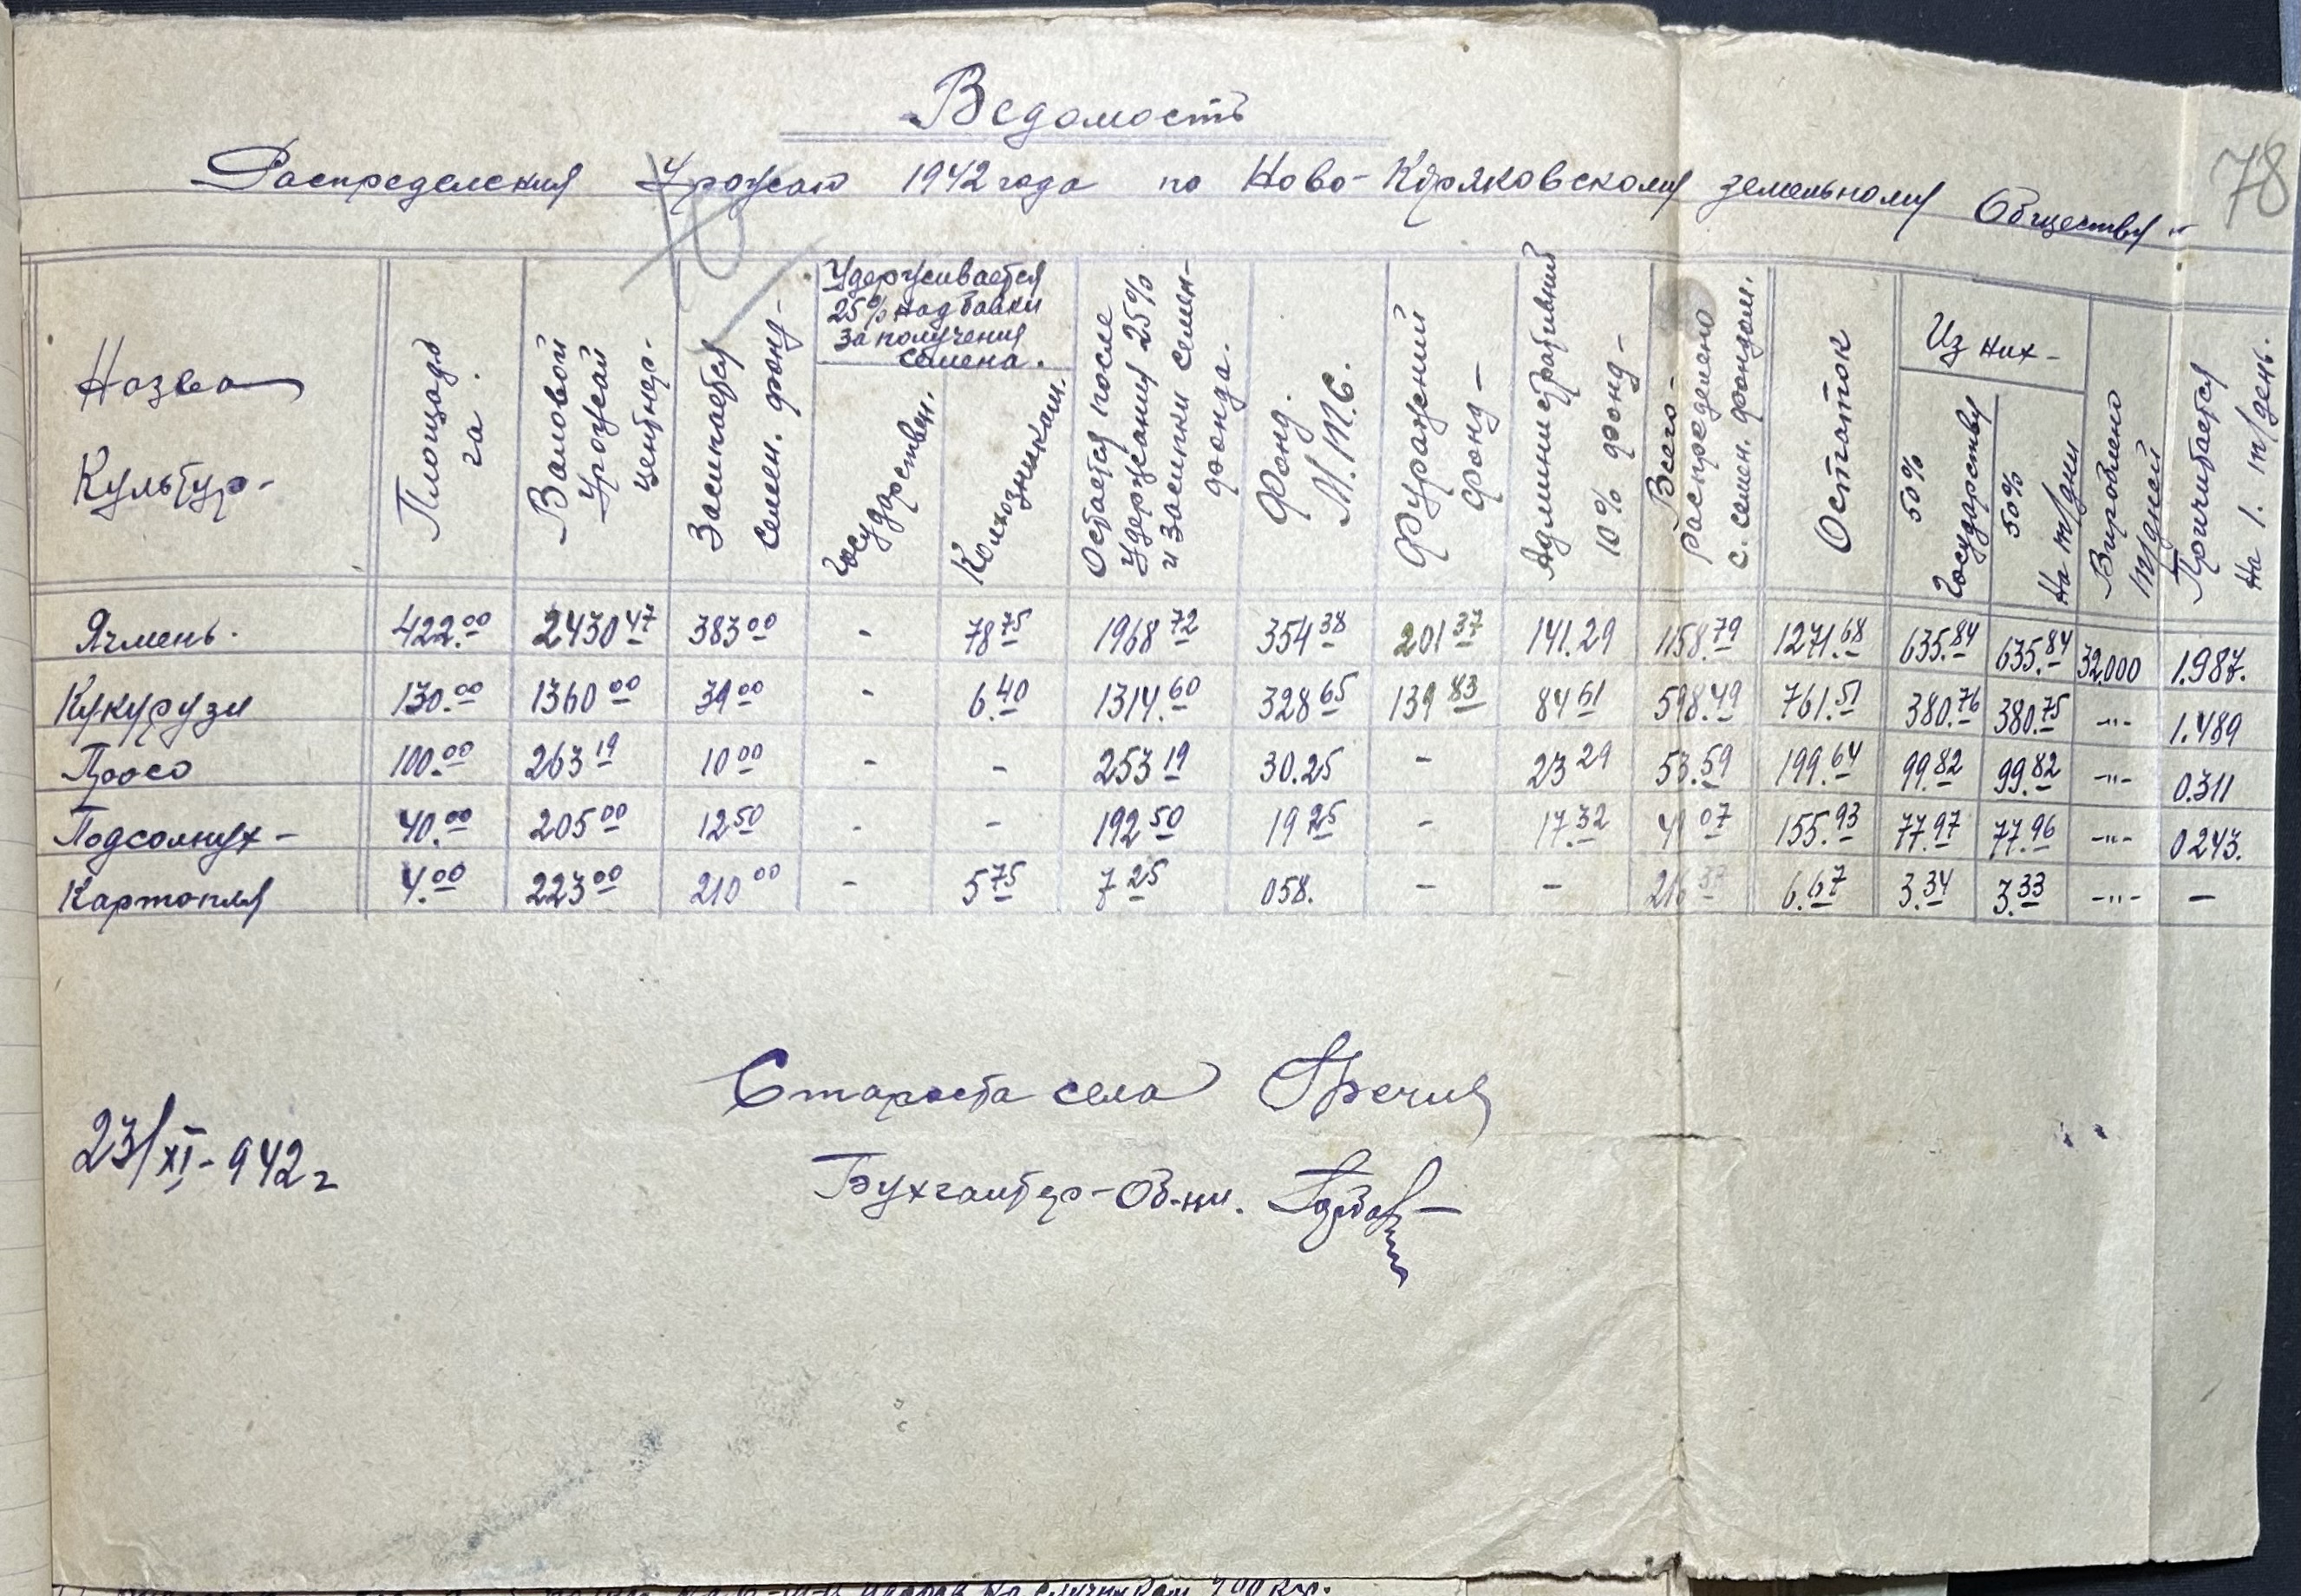 Ведомость
Распределения Урожая 1942 года по Ново-Коряковскому земельному Обществу
78
Назва Культур-
Площадь га.
Валовой Урожай центнер.
Засипается семен. фонд-
Удерживается 25% надбавки за получения семена.
Государствен.
Колхозникам.
Остается после Удержания 25% и Засипки семен- фонда.
Фонд. М.Т.С.
Фуражний Фонд-
Административний 10% фонд-
Всего- Распределено с. семен. фондом.
Остаток
Из них-
50% Государству
50% На т/дни
Вироблено т/дней
Причитается На 1. т/день.
Ячмень. 422.00 2430 47 383 00 - 78 75 1968 72 354 38 201 37 141.29 1158.79 1271.68 635.84 635.84 32.000 1.987.
Кукурузи 130.00 1360 00 39 00 - 6.40 1314.60 328 65 139 83 84 61 598.49 761.51 380.76 380.75 -"- 1.489
Просо 100.00 263 19 10 00 - - 253 19 30.25 - 23 29 53.59 199.64 99.82 99.82 -"- 0.311
Подсолнух- 40.00 205 00 12 50 - - 192 50 19 25 - 17.32 49 07 155.93 77.97 77.96 -"- 0243.
Картопля 4.00 223 00 210 00 - 5 75 7 25 058. - - 216 33 6.67 3.34 3.33 -"- -
Староста села Гречия
23/XI-942г
Бухгалтер-Об-ни.